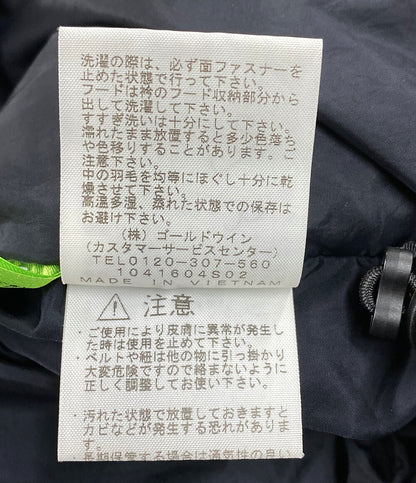 洗濯の際は、必ず面ファスナーを
止めた状態で行って下さい。
フードは衿のフード収納部分から
出して洗濯して下さい。
すすぎ洗いは十分にして下さい。
濡れたまま放置すると多少色落ち
や色移りすることがあります。ご
注意下さい。
中の羽毛を均等にほぐし十分に乾
燥させて下さい。
高温多湿、蒸れた状態での保存は
お避け下さい。
(株)ゴールドウイン
(カスタマーサービスセンター)
TEL0120-307-560
1041604S02
MADE IN VIETNAM
注意
・ご使用により皮膚に異常が発生し
た時は使用をお止め下さい。
・ベルトや紐は他の物に引っ掛かり
大変危険ですので絡まないように
正しく調整してお使い下さい。
・汚れた状態で放置しておきますと
カビなどが発生する恐れがありま
す。
・長期保管する場合は通気性の良い